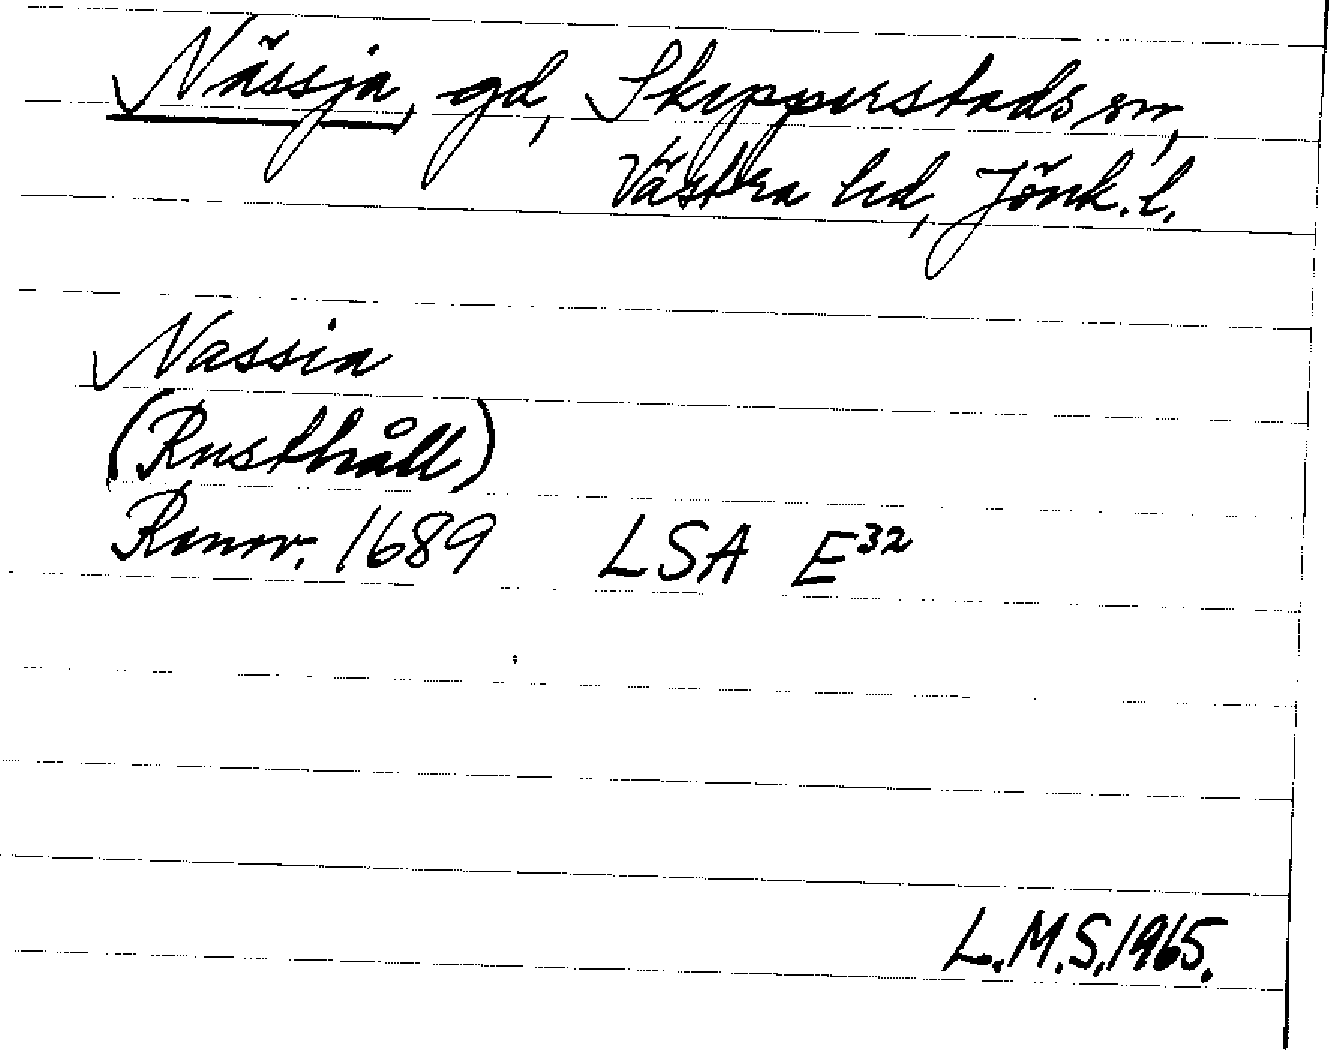 Nässja, gd, Skepperstads sn,
Västra hd, Jönk. l.
Nassia
(Rusthåll)
Renov. 1689 LSA E32
L.M.S. 1965.